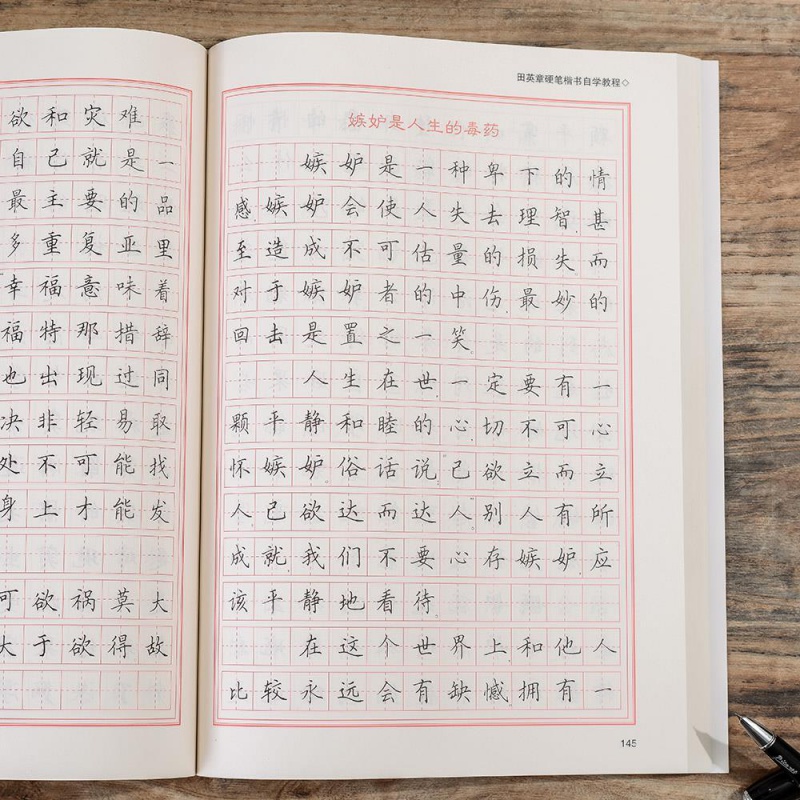 欲和灾难
自己就是一
最主要的品
多重复亚里
幸福意味着
福特那措辞
也出现过同
决非轻易取
处不可能找
身上才能发
可欲祸莫大
大于欲得故
田英章硬笔楷书自学教程◇
嫉妒是人生的毒药
嫉妒是一种卑下的情
感嫉妒会使人失去理智甚
至造成不可估量的损失而
对于嫉妒者的中伤最妙的
回击是置之一笑
人生在世一定要有一
颗平静和睦的心切不可心
怀嫉妒俗话说己欲立而立
人己欲达而达人别人有所
成就我们不要心存嫉妒应
该平静地看待
在这个世界上和他人
比较永远会有缺憾拥有一
145